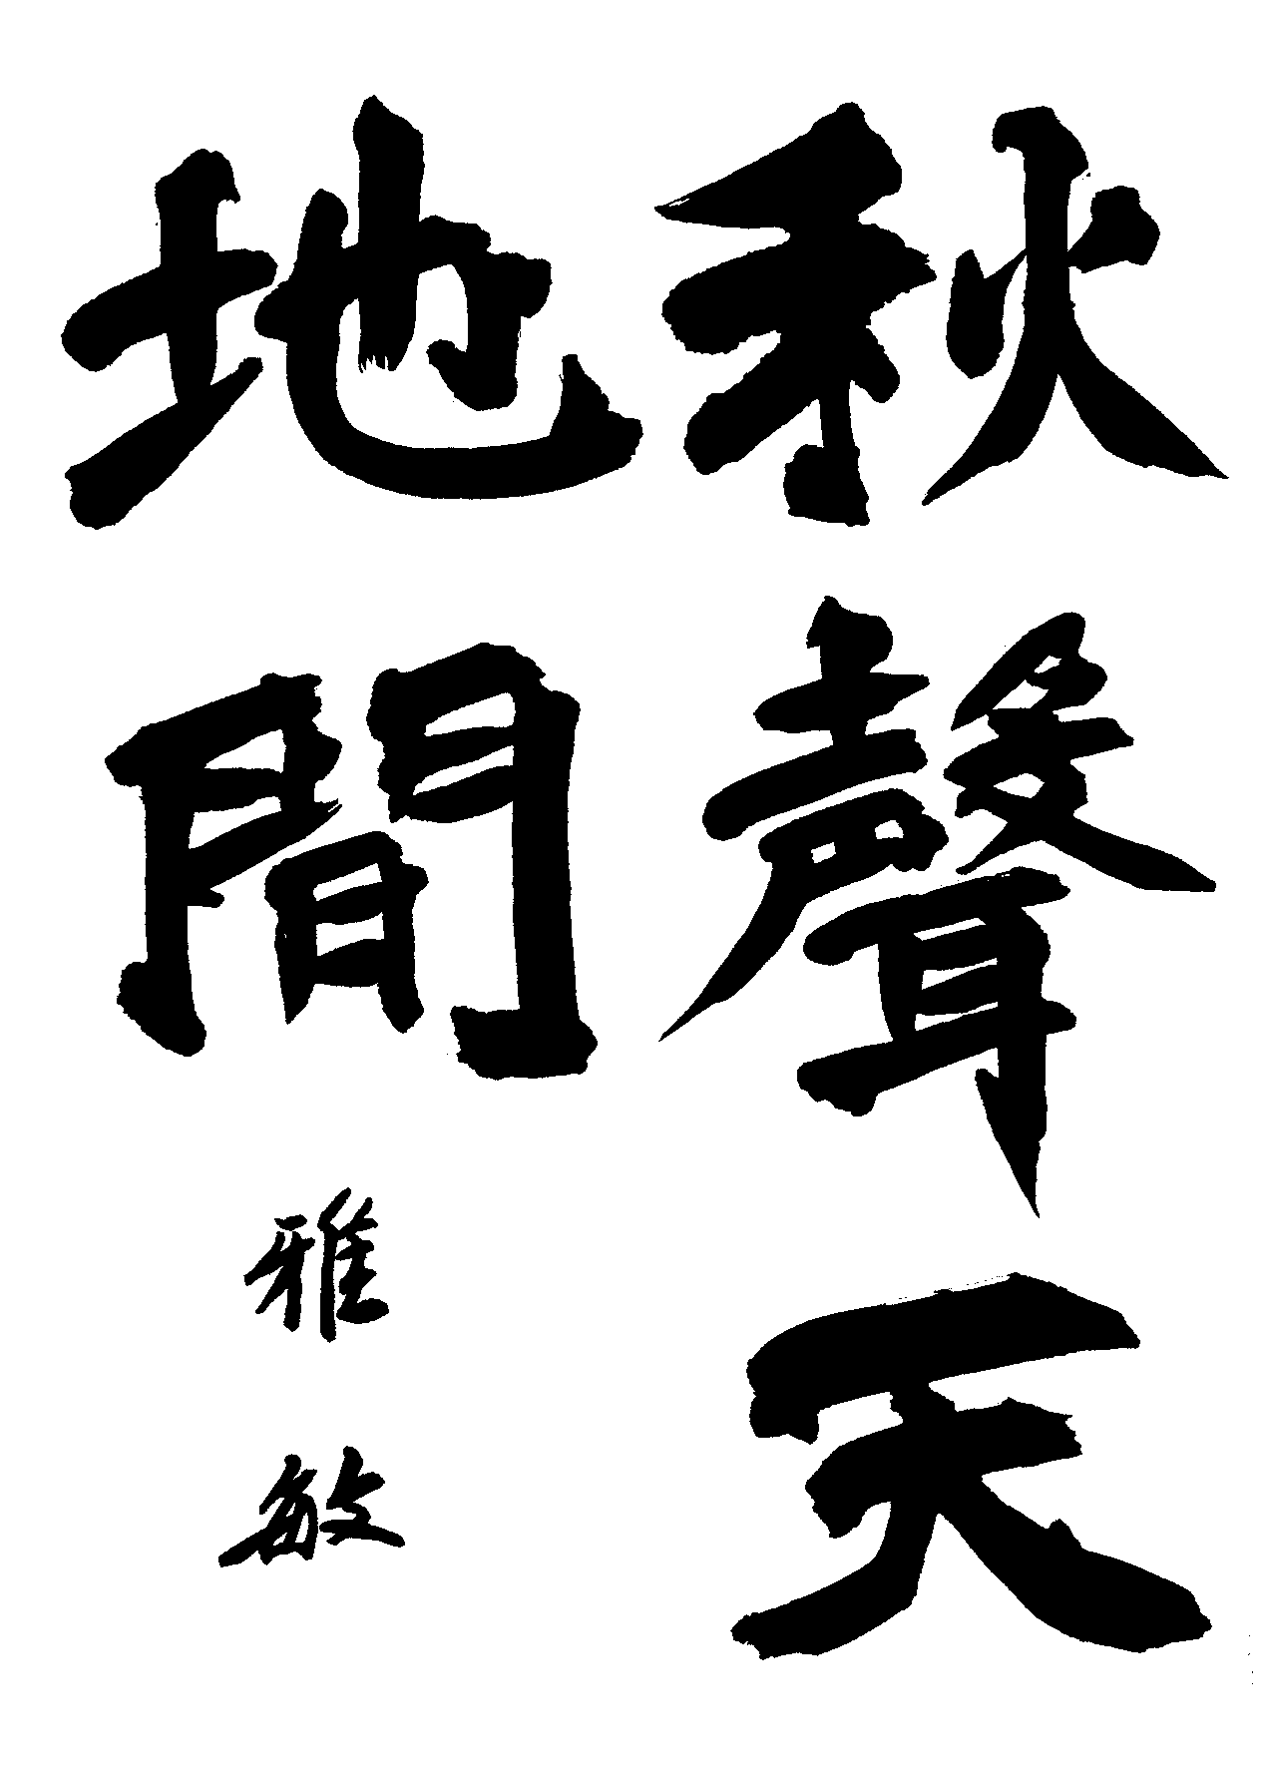 秋聲天
地間
雅敏